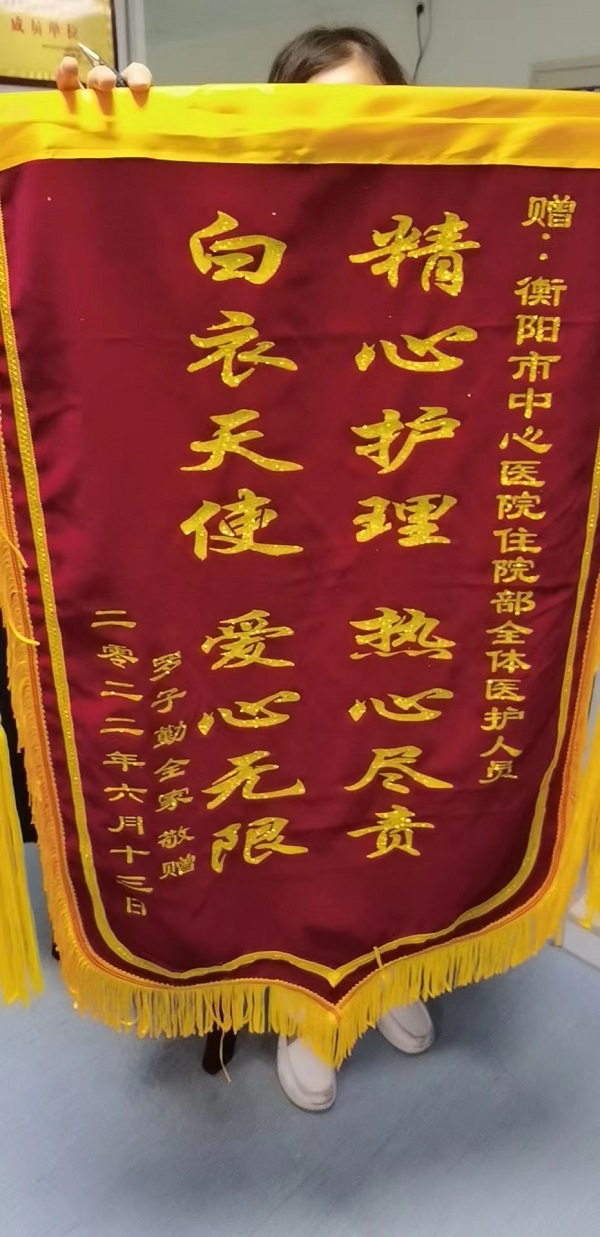 赠：衡阳市中心医院住院部全体医护人员
精心护理 热心尽责
白衣天使 爱心无限
罗子勤全家敬赠
二零二二年六月十三日
成员单位